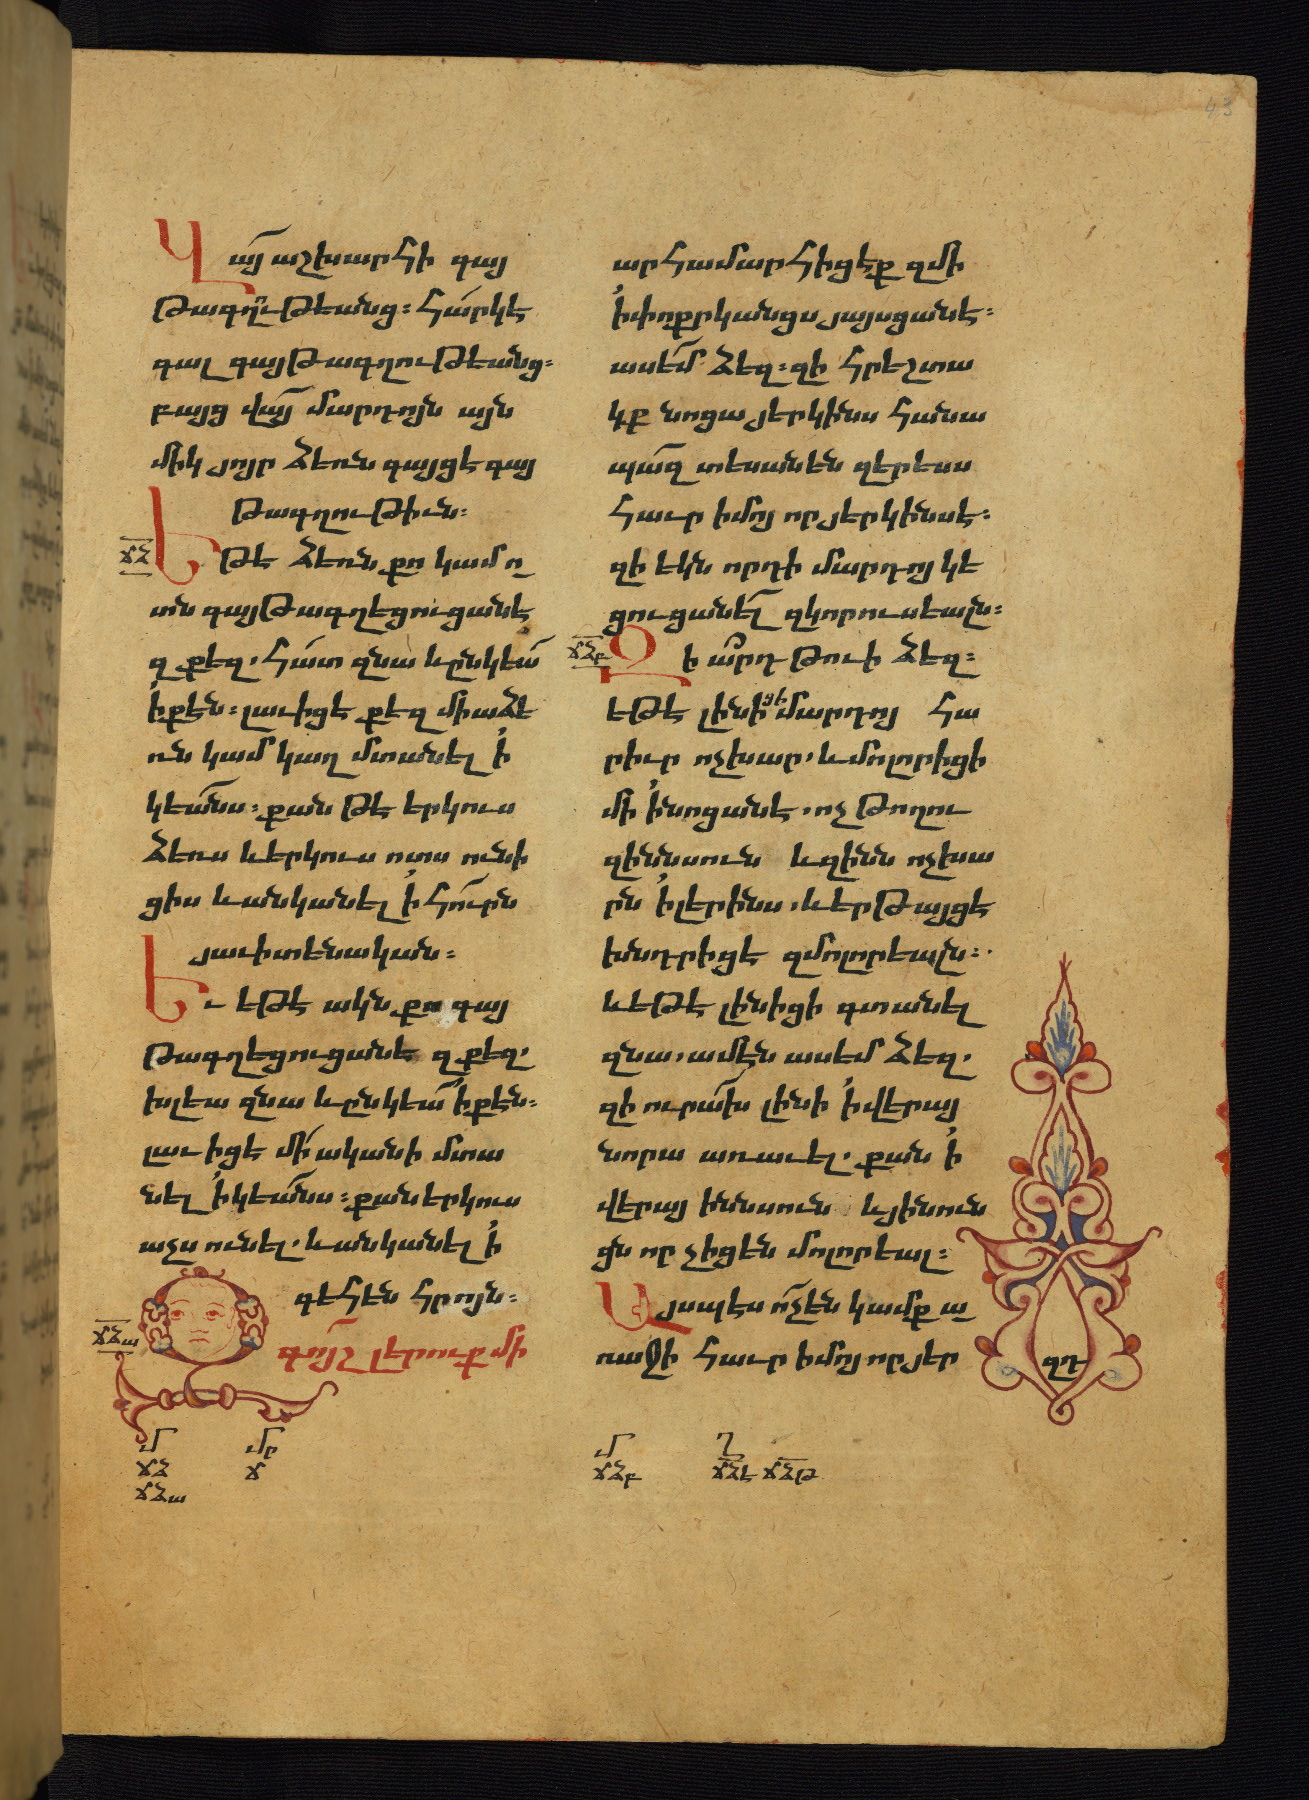 43
Վայ աշխարհի գայ
թագղութեանց։ հարկէ
գալ գայթագղութեանց։
բայց վայ մարդոյն այն
միկ յոյր ձեռն գայցէ գայ
թագղութիւն։
ՃՁ
Եթէ ձեռն քո կամ ո
տն գայթագղեցուցանէ
զքեզ. հատ զնա և ընկեա
ի քէն։ լաւ իցէ քեզ միաձե
ռն կամ կաղ մտանել ի
կեանս։ քան թէ երկուս
ձեռս և երկուս ոտս ունի
ցիս և անկանել ի հուրն
յաւիտենական։
Եւ եթէ ակն քո գայ
թագղեցուցանէ զքեզ.
խլեա զնա և ընկեա ի քէն։
լաւ իցէ միականի մտա
նել ի կեանս։ քան երկուս
աչս ունել. և անկանել ի
գեհեն հրոյն։
ՃՁԱ
Զգոյշ լերուք մի
արհամարհիցէք զմի
ի փոքրկանցս յայսցանէ։
ասեմ ձեզ։ զի հրեշտա
կք նոցա յերկինս հանա
պազ տեսանեն զերեսս
հաւր իմոյ որ յերկինսէ։
զի եկն որդի մարդոյ կե
ցուցանել զկորուսեալն։
ՃՁԲ
Զի արդ թուի ձեզ։
եթէ լինիցէ մարդոյ հա
րիւր ոչխար. և մոլորիցի
մի ի նոցանէ. ոչ թողու
զիննսուն և զինն ոչխա
րն ի լերինս. և երթայցէ
խնդրիցէ զմոլորեալն։
և եթէ լինիցի գտանել
զնա. ամէն ասեմ ձեզ.
զի ուրախ լինի ի վերայ
նորա առաւել. քան ի
վերայ իննսուն և յինուն
ցն որ չիցեն մոլորեալ։
Այսպէս ոչ են կամք ա
ռաջի հաւր իմոյ որ յեր
ԶԴ
Մ
ՃՁ
ՃՁԱ
ՄՐ
Ճ
Մ
ՃՁԲ
Ղ
ՃՁԷ ՃՁԹ